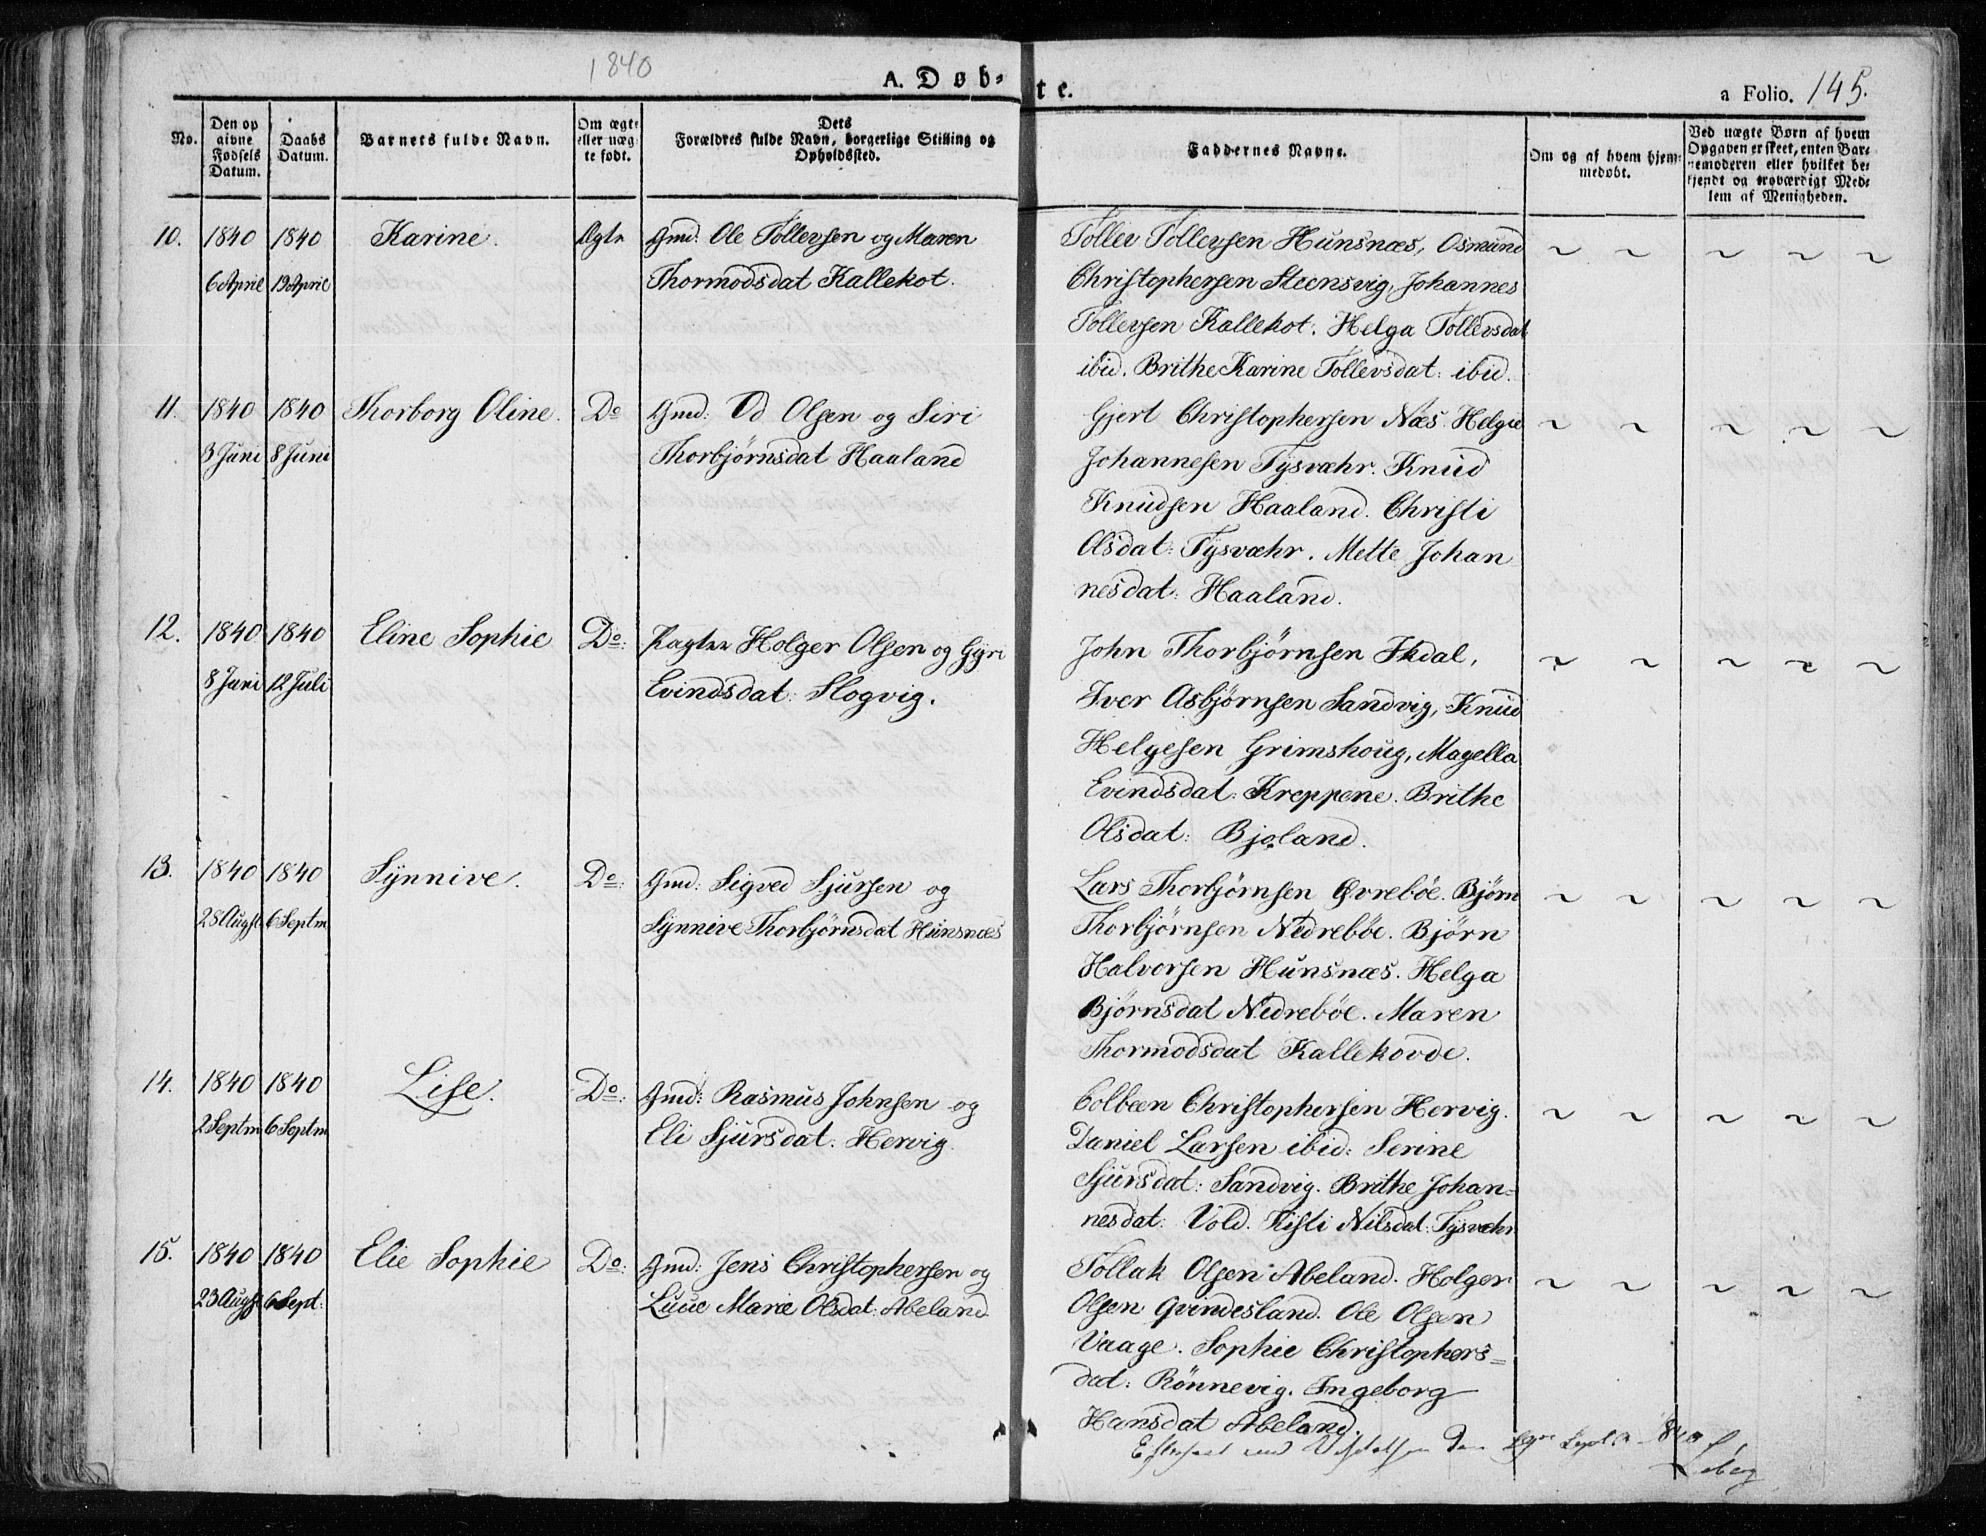 1840
A. Døb-
te.
a Folio. 145.
No.
Den op
givne
Fødsels
Datum.
Daabs
Datum.
Barnets fulde Navn.
Om ægte
eller uæg-
te født.
Dets
Forældres fulde Navn, borgerlige Stilling og
Opholdssted.
Faddernes Navne.
Om og af hvem hjem-
medøbt.
Ved uægte Børn af hvem
Opgaven er skeet, enten Bar-
nemoderen eller hvilket be-
kjendt og troværdigt Med-
lem af Menigheden.
10. 1840 1840 Karine. Ægte Gmd: Ole Tollevsen og Maren
6 April 19 April Thormodsdat Kallekot.
Tollev Tollevsen Hunsnæs, Osmund
Christophersen Steensvig, Johannes
Tollevsen Kallekot. Helga Tollevsdat
ibid. Brithe Karine Tollevsdat: ibid.
11. 1840 1840 Thorborg Oline. Do Gmd: Od Olsen og Siri
3 Juni 8 Juni Thorbjørnsdat Haaland
Gjert Christophersen Næs. Helgie
Johannesen Tysvæhr. Knud
Knudsen Haaland. Christi
Olsdat: Tysvæhr. Mette Johan
nesdat: Haaland.
12. 1840 1840 Eline Sophie Do: Holger Olsen og Gyri
8 Juni 12 Juli Evindsdat: Slogvig.
John Thorbjørnsen Ikdal,
Iver Asbjørnsen Sandvig, Knud
Helgesen Grimshoug, Magella
Evindsdat: Kreppene. Brithe
Olsdat: Bjoland.
13. 1840 1840 Synnive. Do: Gmd: Sigved Sjursen og
28 Augst 6 Septm Synnive Thorbjørnsdat Hunsnæs
Lars Thorbjørnsen Øvrebøe. Bjørn
Thorbjørnsen Nedrebøe. Bjørn
Halvorsen Hunsnæs. Helga
Bjørnsdat Nedrebøe. Maren
Thormodsdat Kallekodde.
14. 1840 1840 Lise. Do: Gmd: Rasmus Johnsen og
2 Septm 6 Septm Eli Sjursdat: Hervig.
Colbeen Christophersen Hervig.
Daniel Larsen ibid: Serine
Sjursdat: Sandvig. Brithe Johan-
nesdat: Vold. Kisti Nilsdat: Tysvæhr
15. 1840 1840 Elie Sophie Do: Gmd: Jens Christophersen og
23 Augst 6 Sept: Lucie Marie Olsdat: Abeland
Tollak Olsen Abeland. Holger
Olsen Qvindesland. Ole Olsen
Vaage. Sophie Christophers-
dat: Rønnevig. Ingeborg
Hansdat Abeland.
Efterseet ved Visitatsen den Septbr 1840